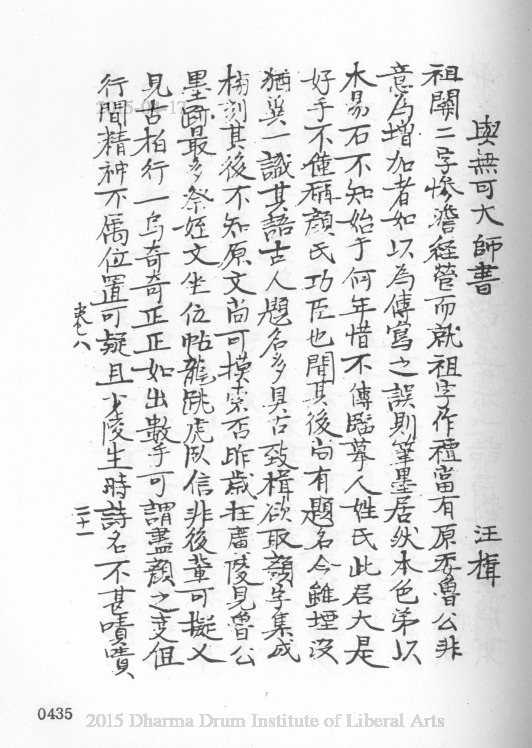 與無可大師書
汪楫
祖關二字慘澹經營而就祖字作禮當有原委魯公非
意為增加者如以為傳寫之誤則筆墨居然本色第以
木易石不知始于何年惜不傳臨摹人姓氏此君大是
好手不僅稱顏氏功臣也聞其後尚有題名今雖堙沒
猶冀一識其語古人題名多具古致楫欲取顏字集成
橅刻其後不知原文尚可摸索否昨歲在廣陵見魯公
墨蹟最多祭姪文坐位帖龍跳虎臥信非後輩可擬又
見古柏行一烏奇奇正正如出數手可謂盡顏之變但
行間精神不屬位置可疑且少陵生時詩名不甚嘖嘖
卷八
二十一
0435
2015 Dharma Drum Institute of Liberal Arts